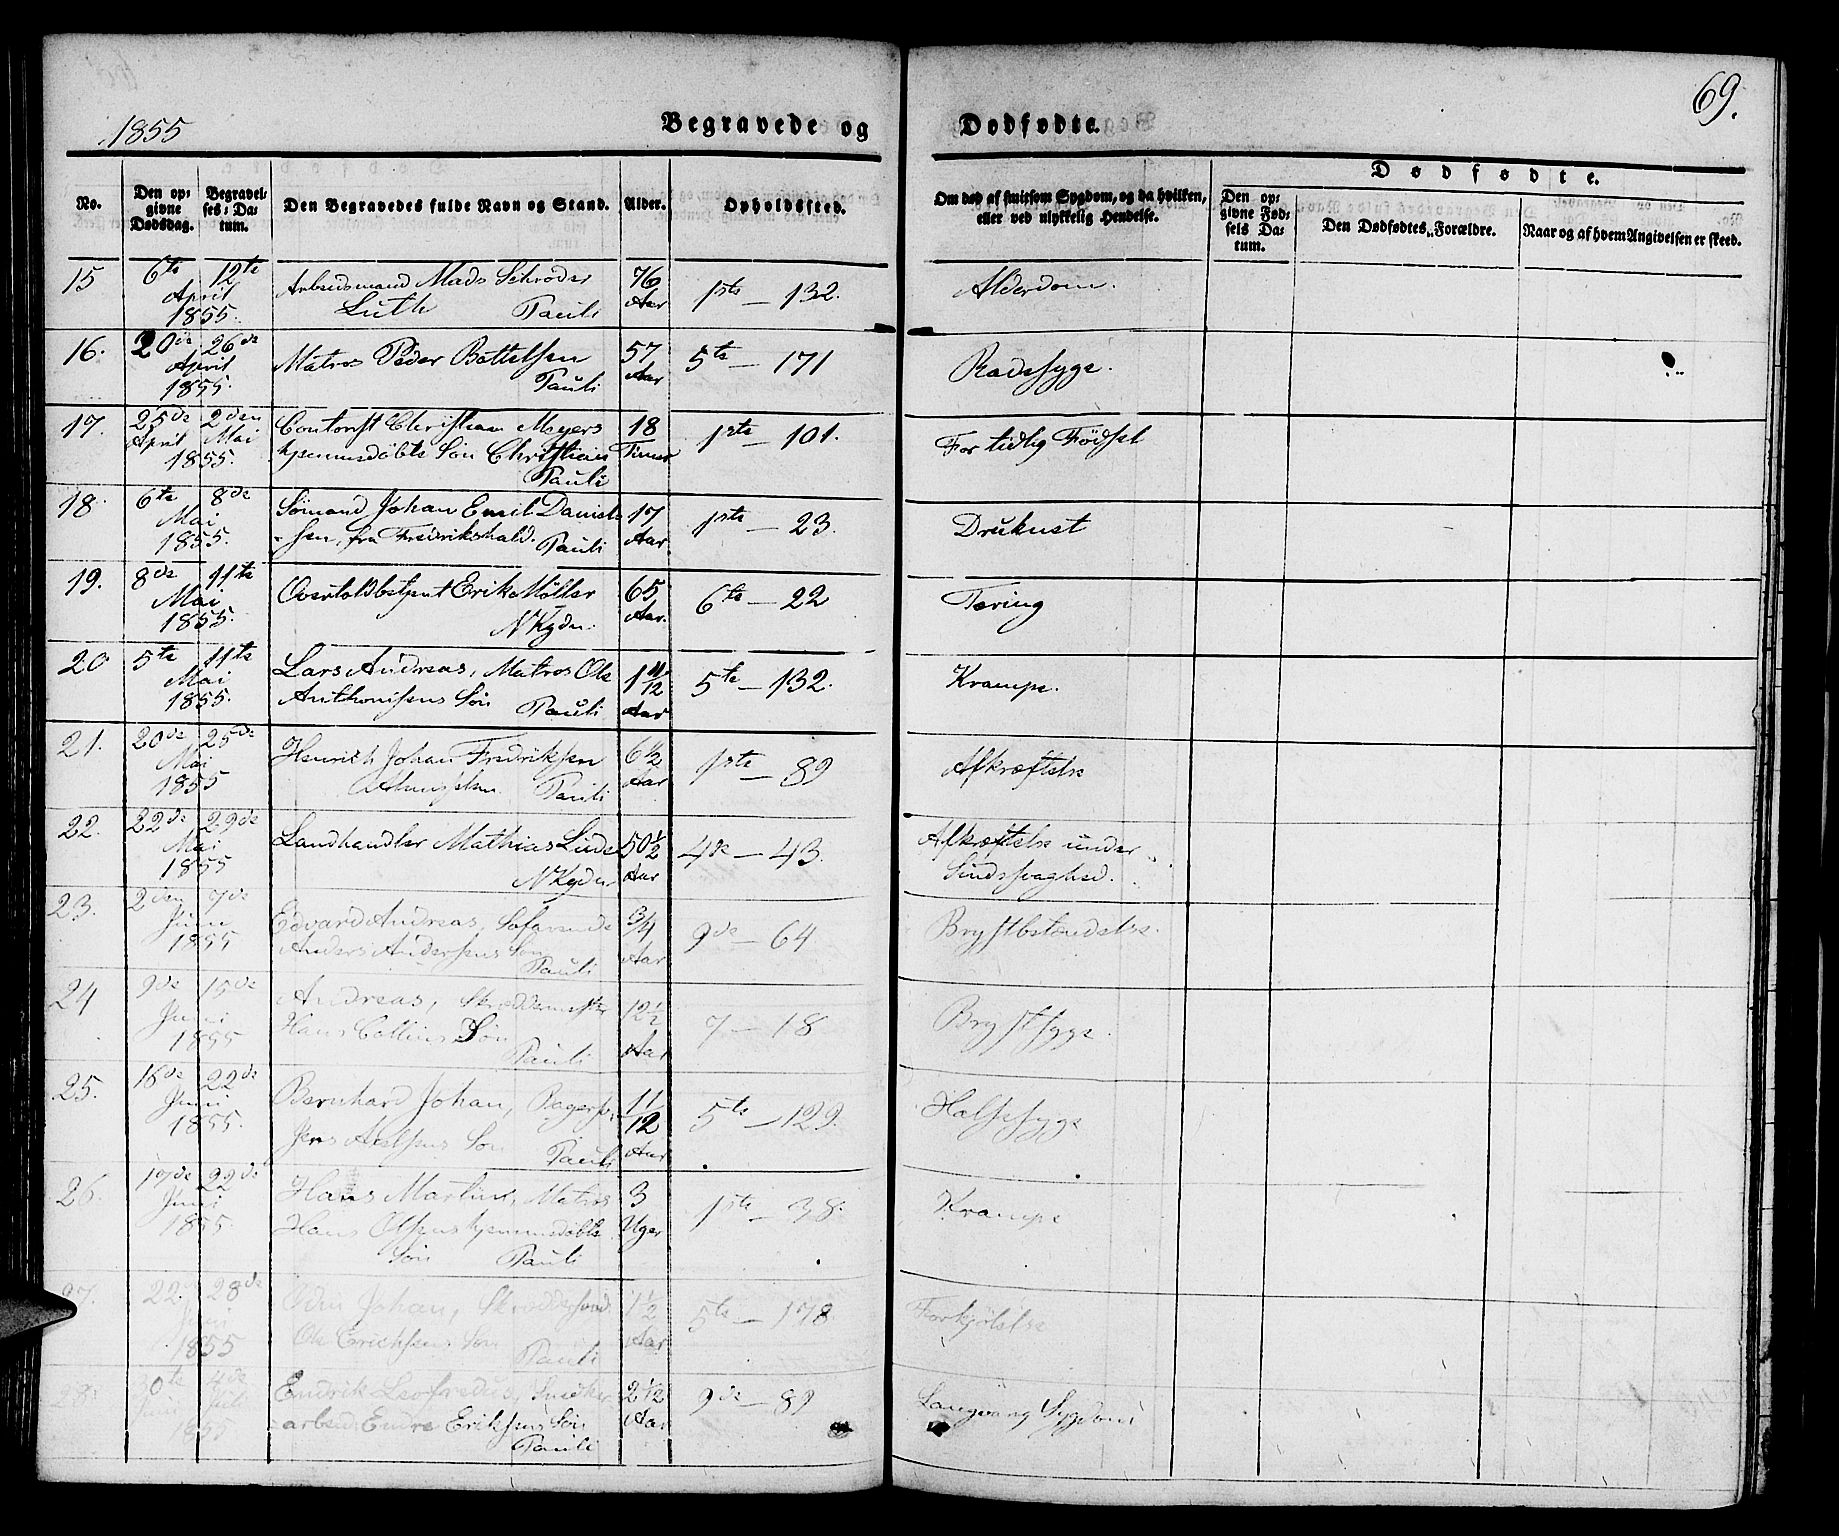 69.
1855
Begravede og Dødfødte.
Dødfødte.
No.
Den opgivne Dødsdag.
Begravelses-Datum.
Den Begravedes fulde Navn og Stand.
Alder.
Opholdssted.
Om død af smitsom Sygdom, og da hvilken, eller ved ulykkelig Hendelse.
Den opgivne Fødsels Datum.
Den Dødfødtes Forældre.
Naar og af hvem Angivelsen er skeed.
15 6te 12te Arbeidsmand Mads Schrøder 76
April Luth Pauli Aar 1ste — 132. Alderdom.
1855.
16. 20de 26de Matros Peder Bottelsen 57
April Pauli Aar 5te — 171 Radesyge.
1855.
17. 25de 2den Contorist Christian Meyers 18
April Mai hjemmedøbte Søn Christian Timer 1ste — 101. For tidlig Fødsel
1855. Pauli
18. 6te 8de Sømand Johan Emil Daniel- 17
Mai sen, fra Fredrikshald. Pauli Aar. 1ste — 23. Druknet
1855.
19. 8de 11te Overtoldbetjent Erik Møller 65
Mai NKyder. Aar. 6te — 22 Tæring
1855.
20 5te 11te Lars Andreas, Matros Ole 1 11/12
Mai Anthonisens Søn Pauli Aar 5te — 132. Krampe.
1855.
21. 20de 25de Henrich Johan Fredriksen 6 1/2
Mai Pauli Aar 1ste — 89 Afkræftelse
1855
22. 22de 29de Landhandler Mathias Lude 50 1/2
Mai NKyder Aar 4de — 43. Afkræftelse under
1855 Sindssvaghed.
23. 2den 7de Edvard Andreas, Søfarende 3/4
Juni Anders Andersens Søn Aar 9de — 64 Brystbetændelse.
1855 Pauli
24 9de 15de Andreas, Skræddermester 12 1/2
Juni Hans Collins Søn 7 — 18 Brystsyge.
1855 Pauli Aar
25. 16de 22de Bernhard Johan, 11/12
Juni Jens Axelsens Søn Aar 5te — 129. Halssyge
1855. Pauli
26. 19de 22de Hans Martin, Matros 3
Juni Hans Olsens hjemmedøbte Uger 1ste — 38. Krampe
1855. Søn Pauli
27. 22 28de Odin Johan, 1 1/2
Juni Ole Erichsens Søn Aar 5te — 178. Forkjølelse
1855 Pauli
28. 4de Endrik Leofredus, Snedker 2 1/2
Juli arbeid: Endre Eriksens Søn Aar 9de — 89 Langvarig Sygdom
1855 Pauli